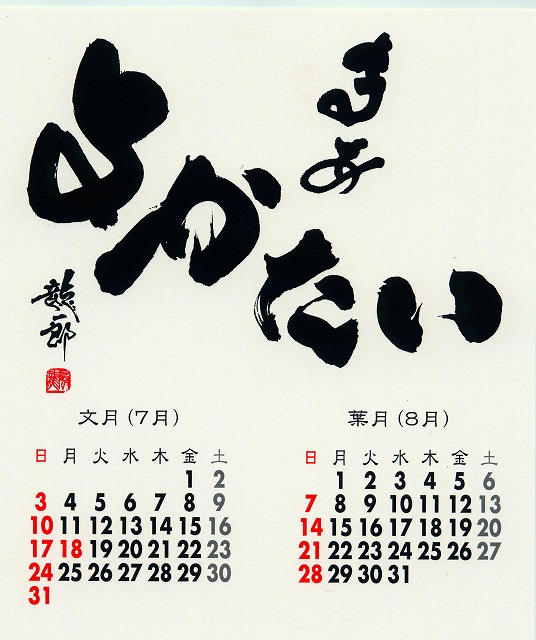 まあ
よかたい
龍一郎
文月(7月)
日 月 火 水 木 金 土
1 2
3 4 5 6 7 8 9
10 11 12 13 14 15 16
17 18 19 20 21 22 23
24 25 26 27 28 29 30
31
葉月(8月)
日 月 火 水 木 金 土
1 2 3 4 5 6
7 8 9 10 11 12 13
14 15 16 17 18 19 20
21 22 23 24 25 26 27
28 29 30 31